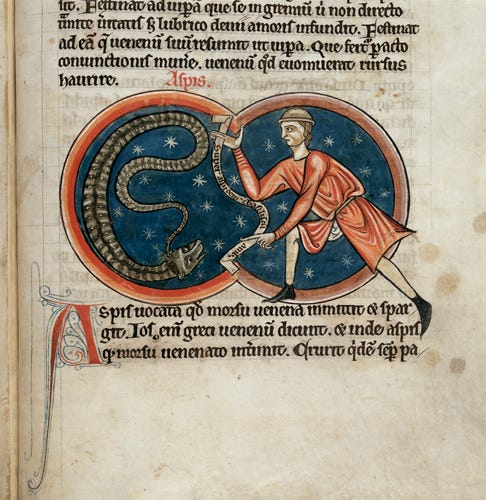 sit. Festinat ad uipãm que se in gremiũ ũ non directo
tmite ũitatis s; lubrico deuii amoris infundit. Festinat
ad eã q uenenũ suũ resumit ut uipa. Que fert pacto
coniunctionis mune. uenenũ qd euomuerat rursus
haurire. Aspis.
Aspis uocata qd morsu uenena inmittit & spar
git. Ios. eni greci uenenũ dicunt. & inde aspis
q morsu uenenato intimit.